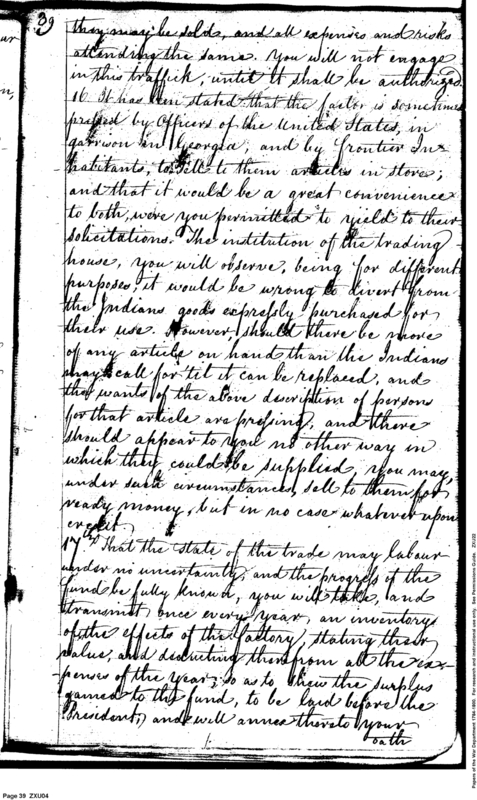 39
they may be sold, and all expenses and risks
attending the same. You will not engage
in this traffick, until it shall be authorized.
16. It has been stated that the factor is sometimes
pressed by Officers of the United States, in
garrison in Georgia, and by frontier In=
habitants, to sell to them articles in store;
and that it would be a great convenience
to both, were you permitted to yield to their
solicitations. The institution of the trading
house, you will observe, being for different
purposes, it would be wrong to divert from
the Indians goods expressly purchased for
their use. However, should there be more
of any article on hand than the Indians
may call for til it can be replaced, and
the wants of the above discription of persons
for that article are pressing, and there
should appear to you no other way in
which they could be supplied, you may,
under such circumstances, sell to them for
ready money, but in no case whatever upon
credit.
17th That the state of the trade may labour
under no uncertainty, and the progress of the
fund be fully known, you will take, and
transmit once every year, an inventory
of the effects of the factory, stating their
value, and deducting therefrom all the ex-
penses of the year; so as to shew the surplus
gained to the fund, to be laid before the
President; and will annex thereto your
oath
Page 39 ZXU04
Papers of the War Department 1784-1800. For research and instructional use only. See Permissions Guide. ZXJ22